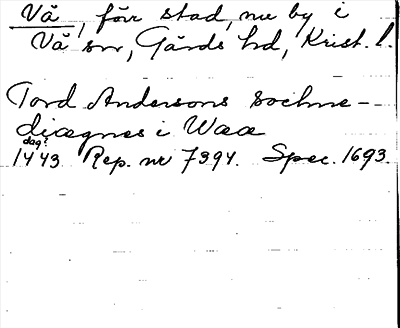 Vä, förr stad, nu by i
Vä sn, Gärds hd, Krist. l.
Tord Andersons sochne-
diægnes i Waa
dag?
1443 Rep. nr 7394. Spec. 1693.